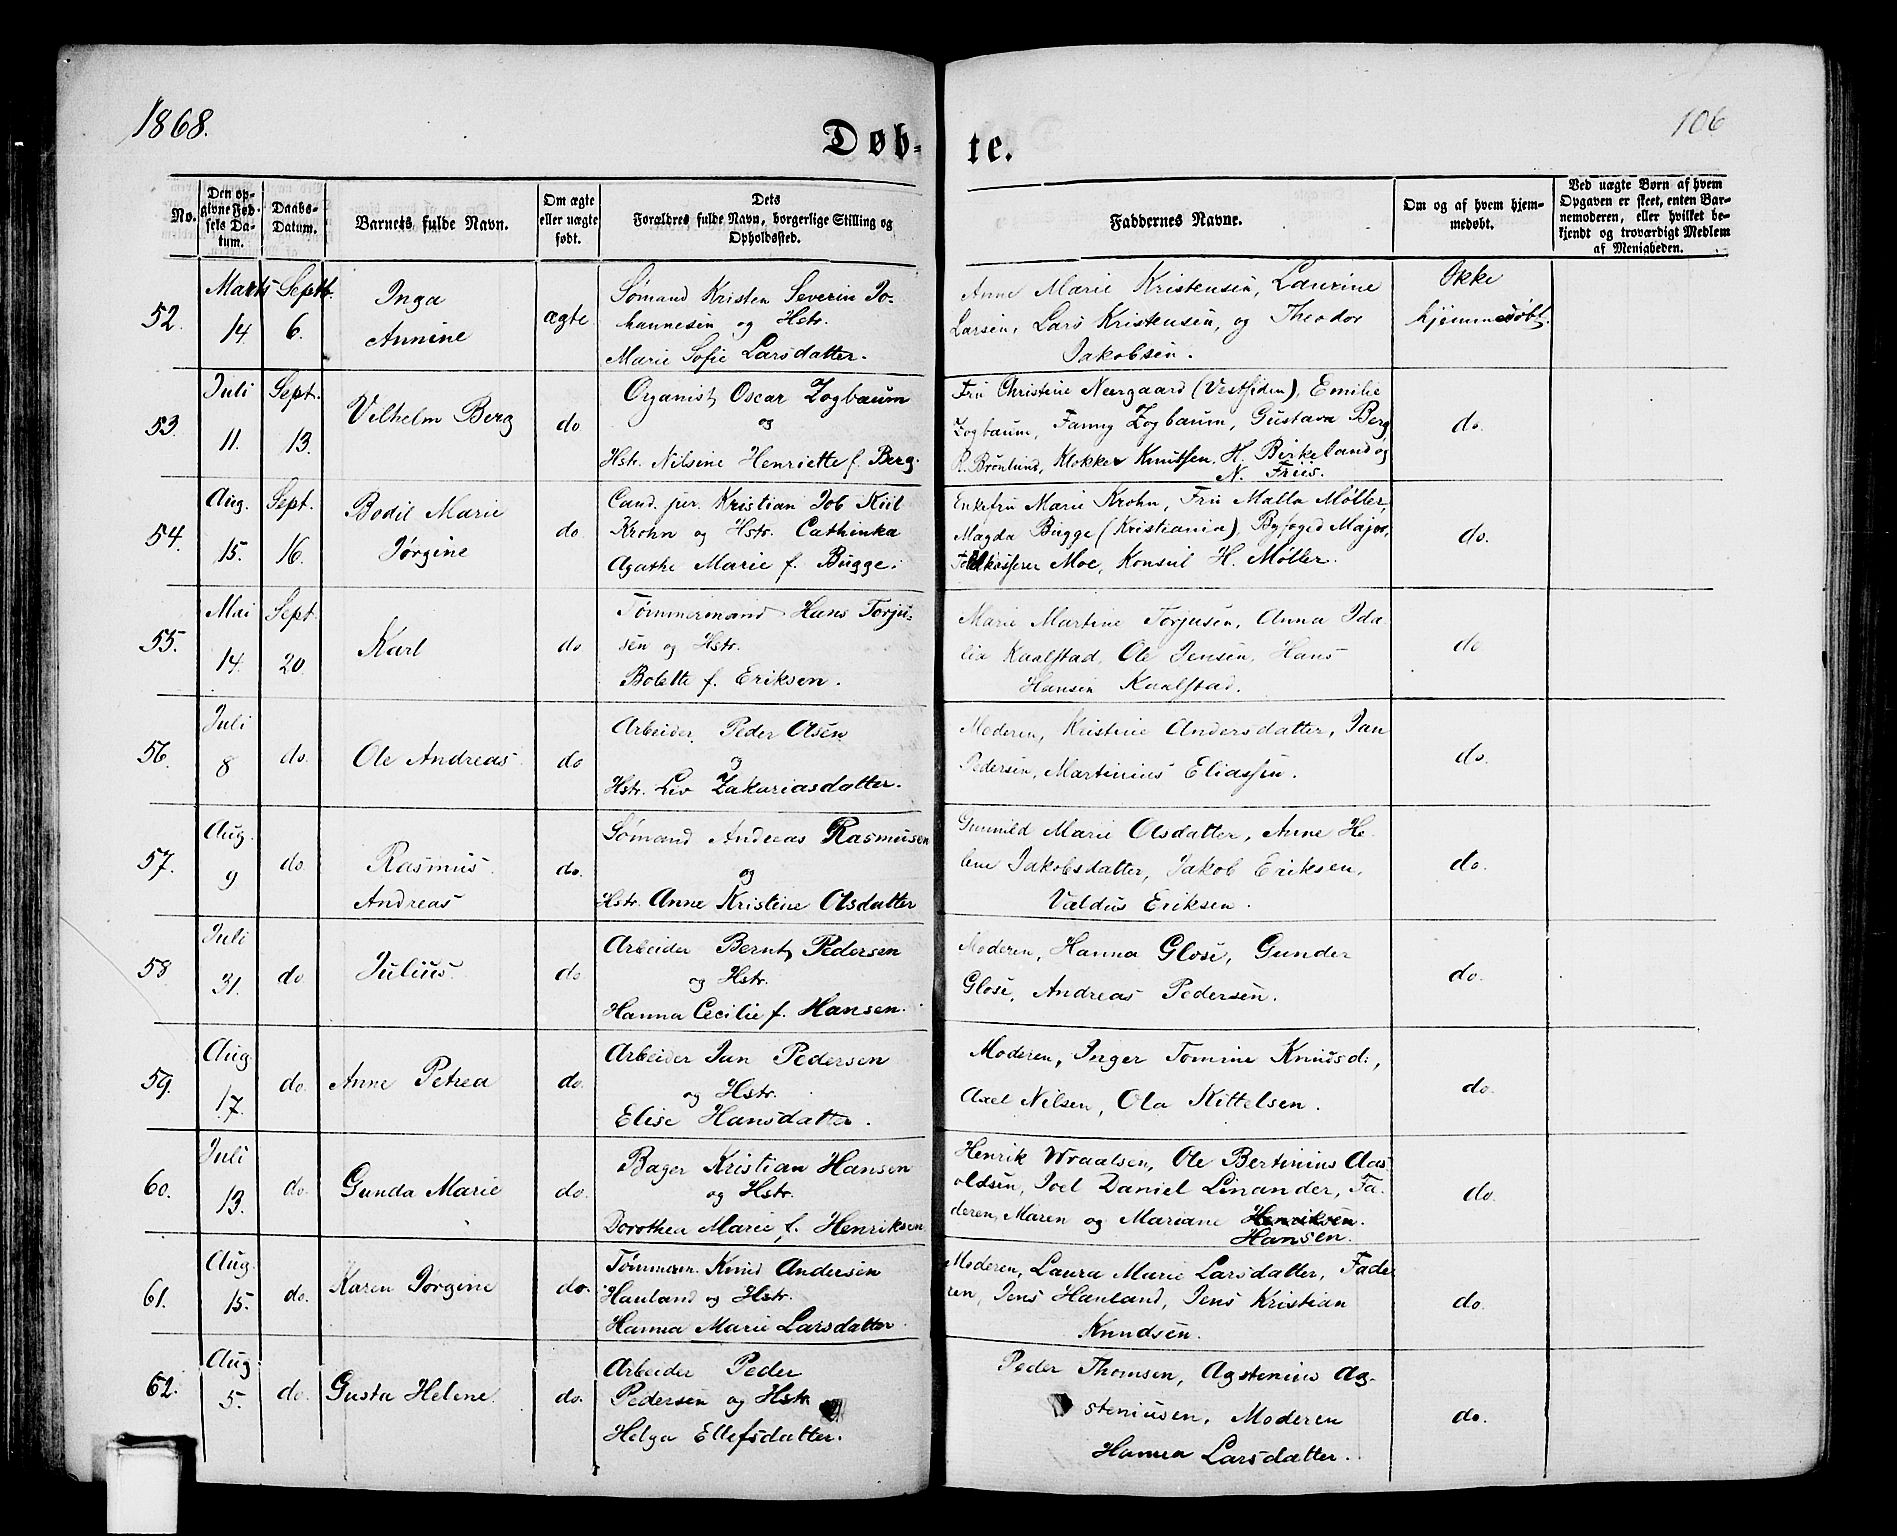 1868.
106
Døb-te.
No.
Den op-
givne Fød-
sels Da-
tum.
Daabs-
Datum.
Barnets fulde Navn.
Om ægte
eller uægte
født.
Dets
Forældres fulde Navn, borgerlige Stilling og
Opholdssted.
Faddernes Navne.
Om og af hvem hjem-
medøbt.
Ved uægte Børn af hvem
Opgaven er skeet, enten Bar-
nemoderen, eller hvilket be-
kjendt og troværdigt Medlem
af Menigheden.
52.
Marts
14
Septb.
6.
Inga
Annine
ægte
Sømand Kristen Severin Jo-
hannesen og Hstr.
Marie Sofie Larsdatter.
Anne Marie Kristensen, Laurine
Larsen, Lars Kristensen, og Theodor
Jakobsen.
Ikke
hjemmedøbt.
53.
Juli
11.
Sept.
13.
Vilhelm Berg
do
Organist Oscar Zogbaum
og
Hstr. Nilsine Henriette f. Berg.
Fru Christine Neergaard (Vestsiden), Emilie
Zogbaum, Fanny Zogbaum, Gustava Berg
R. Brønlund, Klokker Knutsen, H. Birkeland og
N. Friis.
do.
54.
Aug.
15.
Sept.
16.
Bodil Marie
Jørgine
do
Cand. jur. Kristian Job Kiil
Krohn og Hstr. Cathinka
Agathe Marie f. Bugge.
Enkefru Marie Krohn, Fru Malla Møller,
Magda Bugge (Kristiania), Byfoged Major,
Toldkasserer Moe, Konsul H. Møller.
do.
55.
Mai
14.
Sept.
20.
Karl
do
Tømmermand Hans Torju-
sen og Hstr.
Bolette f. Eriksen.
Marie Martine Torjusen, Anna Ida-
lia Kaalstad, Ole Jensen, Hans
Hansen Kaalstad.
do
56.
Juli
8
do.
Ole Andreas
do
Arbeider Peder Olsen
og
Hstr. Liv Zakariasdatter.
Moderen, Kristine Andersdatter, Jan
Pedersen, Martinius Eliassen.
do.
57.
Aug.
9
do.
Rasmus
Andreas
do.
Sømand Andreas Rasmusen
og
Hstr. Anne Kristine Olsdatter
Gunnild Marie Olsdatter, Anne He-
lene Jakobsdatter, Jakob Eriksen,
Valdus Eriksen.
do.
58
Juli
31.
do
Julius
do
Arbeider Bernt Pedersen
og Hstr.
Hanna Cecilie f. Hansen.
Moderen, Hanna Glose, Gunder
Glose, Andreas Pedersen.
do.
59.
Aug
17.
do.
Anne Petrea
do.
Arbeider Jan Pedersen
og Hstr.
Elise Hansdatter.
Moderen, Inger Tomine Knudsd:,
Axel Nilsen, Ola Kittelsen.
do.
60.
Juli
13.
do.
Gunda Marie
do.
Bager Kristian Hansen
og Hstr.
Dorothea Marie f. Henriksen
Henrik Wraalsen, Ole Bertinius Aas-
oldsen, Joel Daniel Linander, Fa-
deren, Maren og Mariane Henriksen.
Hansen.
do.
61.
Aug.
15.
do.
Karen Jørgine
do.
Tømmerm. Knud Andersen
Hauland og Hstr.
Hanna Marie Larsdatter.
Moderen, Laura Marie Larsdatter, Fade-
ren, Jens Hauland, Jens Kristian
Knudsen.
do.
62.
Aug
5.
do.
Gusta Helene
do.
Arbeider Peder
Pedersen og Hstr.
Helga Ellefsdatter.
Peder Thomsen, Agstenius Ag-
steniusen, Moderen
Hanna Larsdatter.
do.